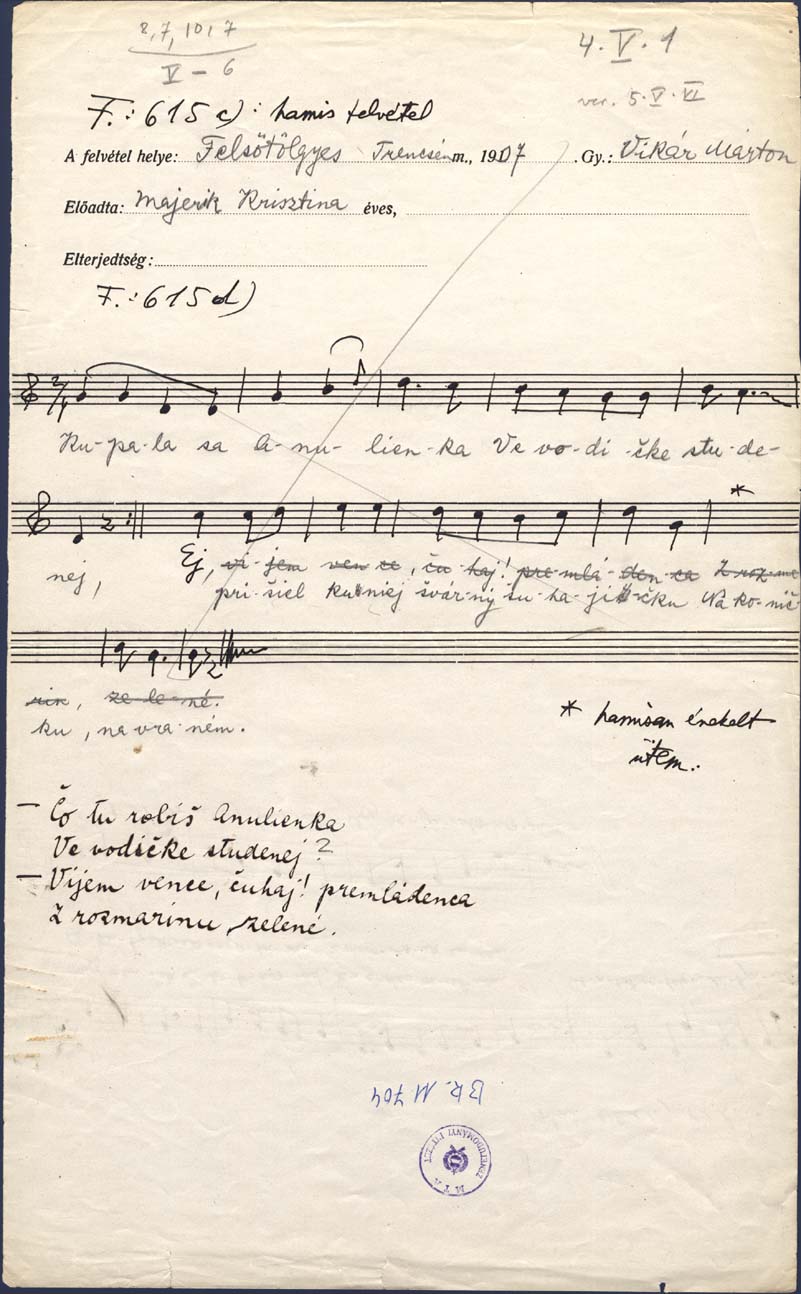 8, 7, 10, 7
V – 6
4. V. 1
ver. 5. V. VI
F.: 615 c) : hamis felvétel
A felvétel helye: Felsőtölgyes Trencsén m., 1907 . Gy.: Vikár Márton
Előadta: Majerik Krisztina éves,
Elterjedtség:
F.: 615 d)
2/4
Ku-pa-la sa A-nu-lien-ka Ve vo-di-čke stu-de-
*
nej, Ej, vi-jem ven-ce, ču-haj! pre-mlá-den-ca Z roz-ma
pri-šiel ku niej švár-ný šu-ha-ji-čku Na ko-nič
rin, ze-le-né.
ku, na vra-ném.
* hamisan énekelt
ütem.
– Čo tu robíš Anulienka
Ve vodičke studenej?
– Vijem vence, čuhaj! premládenca
Z rozmarínu zelené.
BR. M 704
M T A